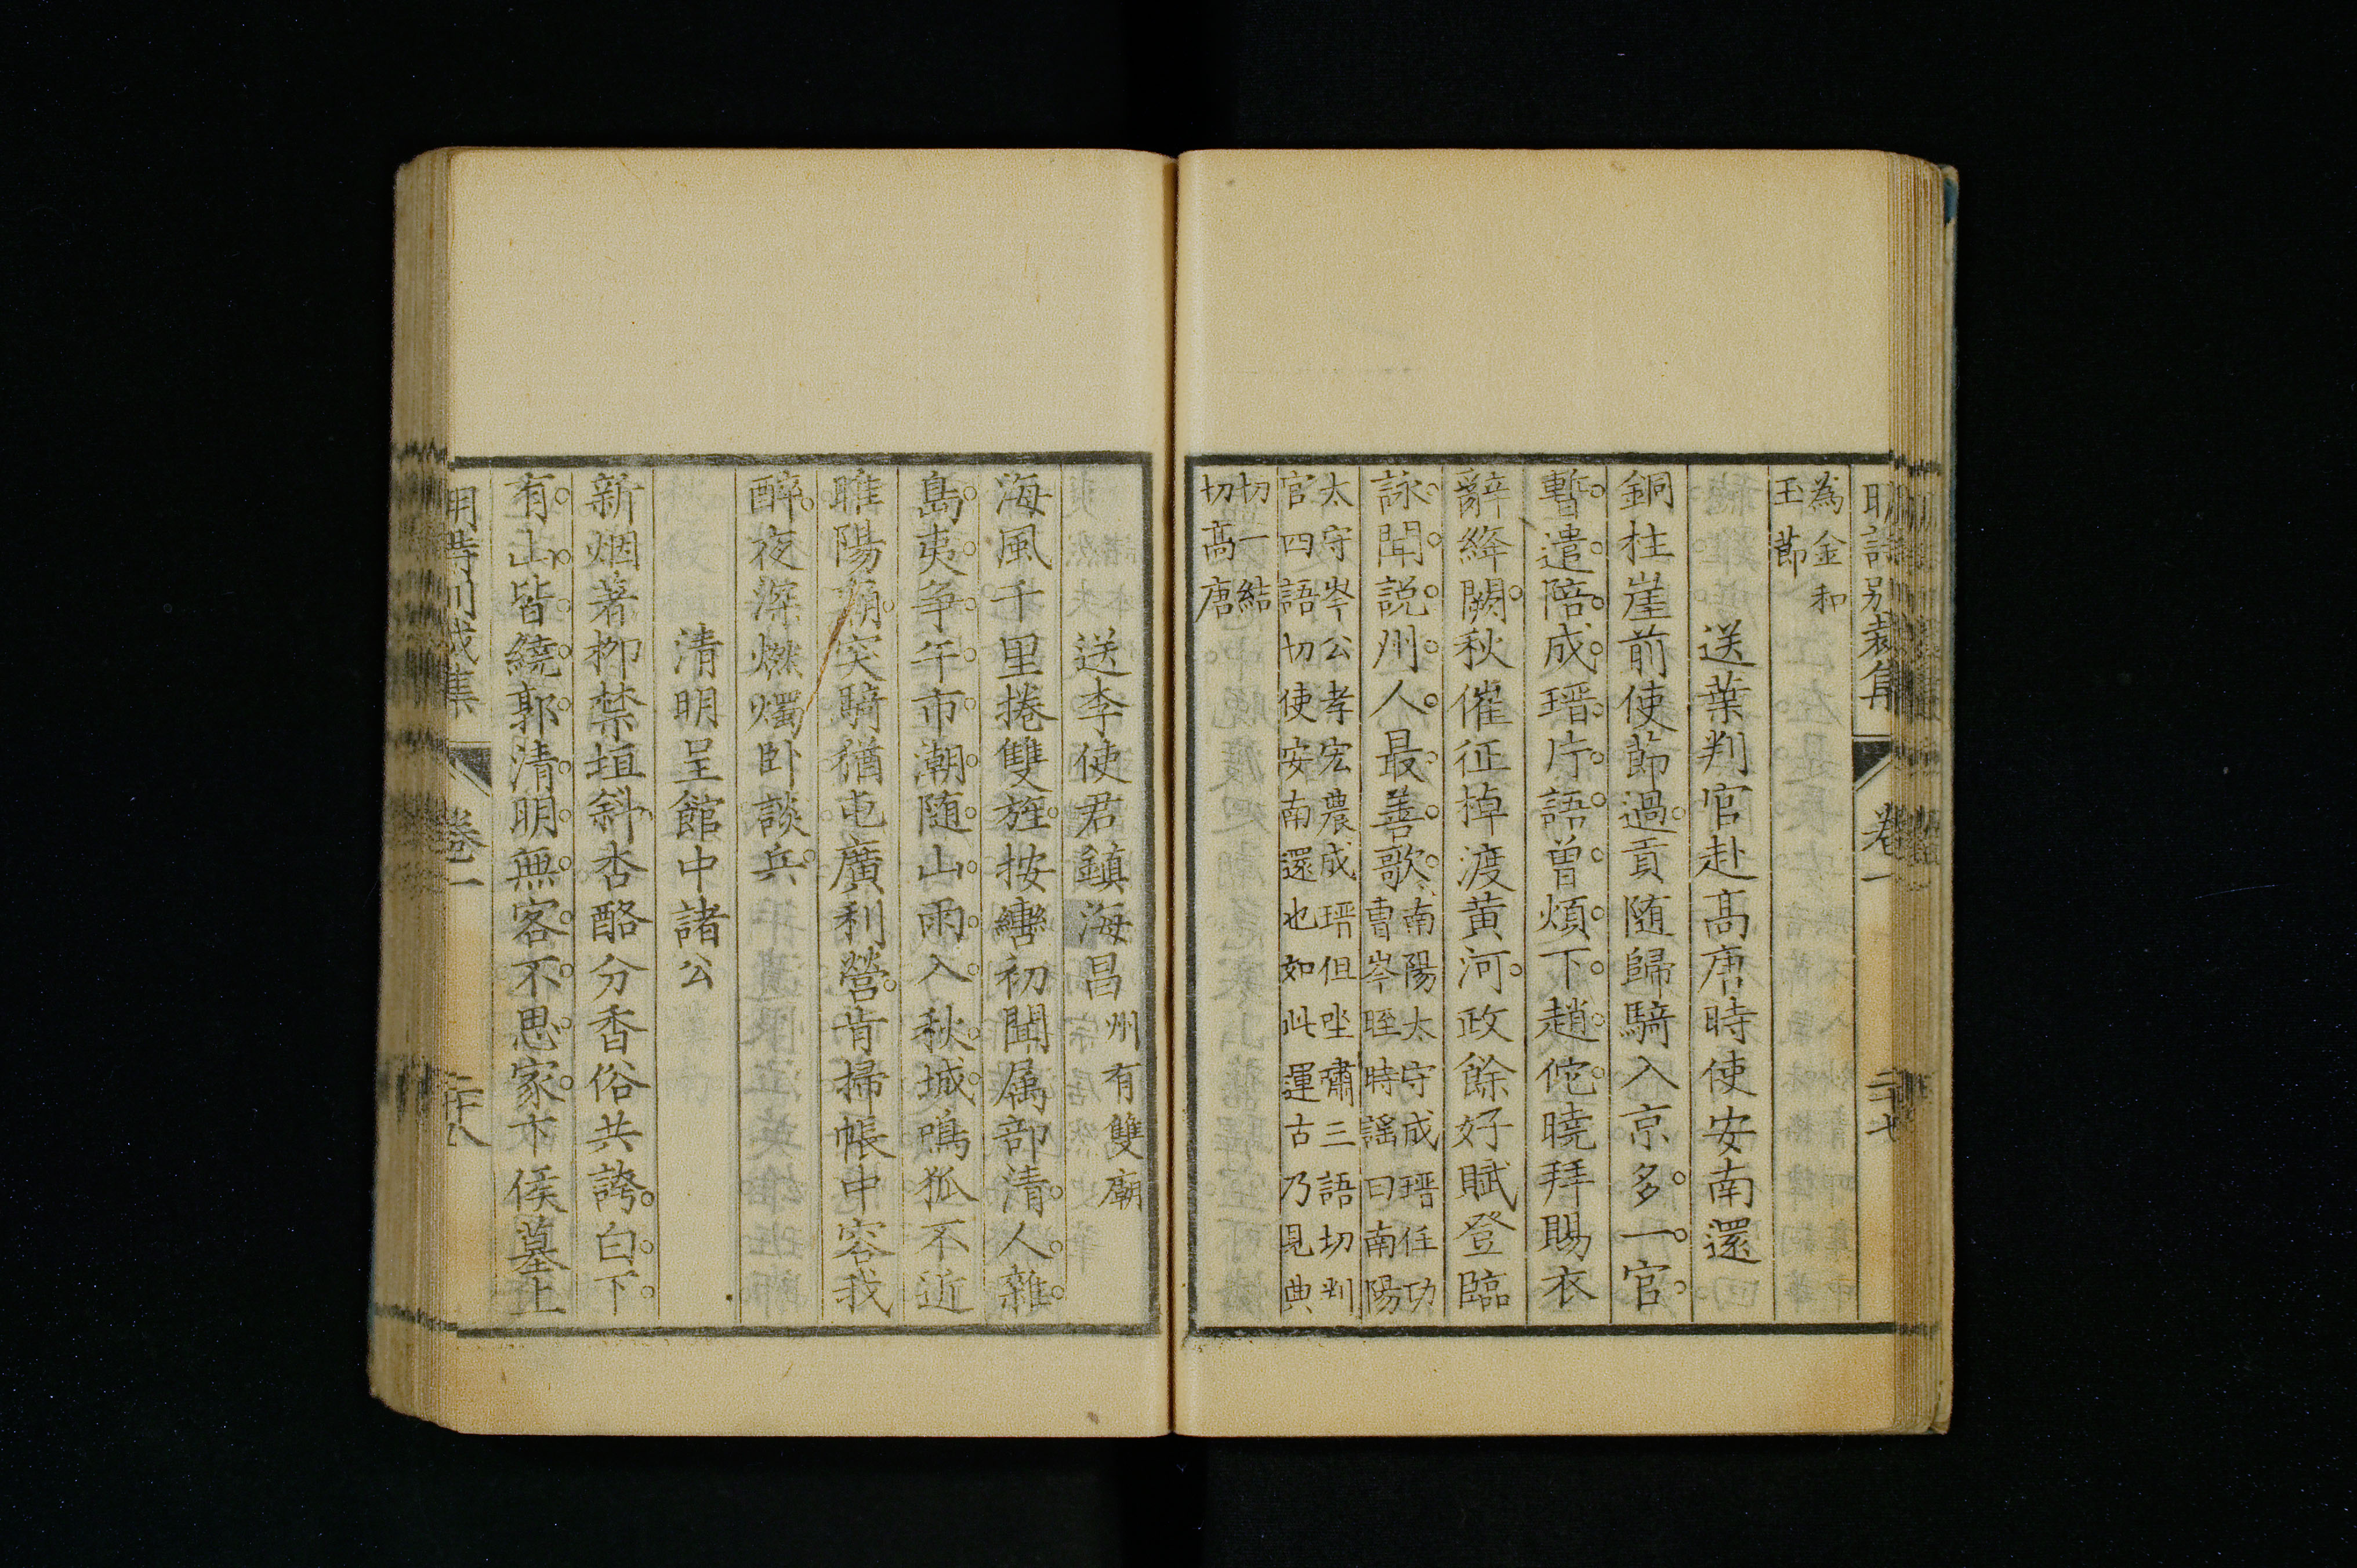 明詩別裁集 卷一 二十七
為金和
玉節
送葉判官赴高唐時使安南還
銅柱崖前使節過貢随歸騎入京多一官
暫遣陪成瑨片語曾煩下趙佗曉拜賜衣
辭絳闕秋催征棹渡黄河政餘好賦登臨
詠聞説州人最善歌
南陽太守成瑨任功
曹岑晊時謡曰南陽
太守岑公孝宏農成瑨但坐嘯三語切判
官四語切使安南還也如此運古乃見典
切一結
切高唐
送李使君鎮海昌州有雙廟
海風千里捲雙旌按轡初聞属部清人雜
島夷争午市潮随山雨入秋城鳴狐不近
睢陽廟突騎猶屯廣利營肯掃帳中容我
醉夜深燃燭卧談兵
清明呈館中諸公
新烟著柳禁垣斜杏酪分香俗共誇白下
有山皆繞郭清明無客不思家卞侯墓上
明詩別裁集 卷一 二十八